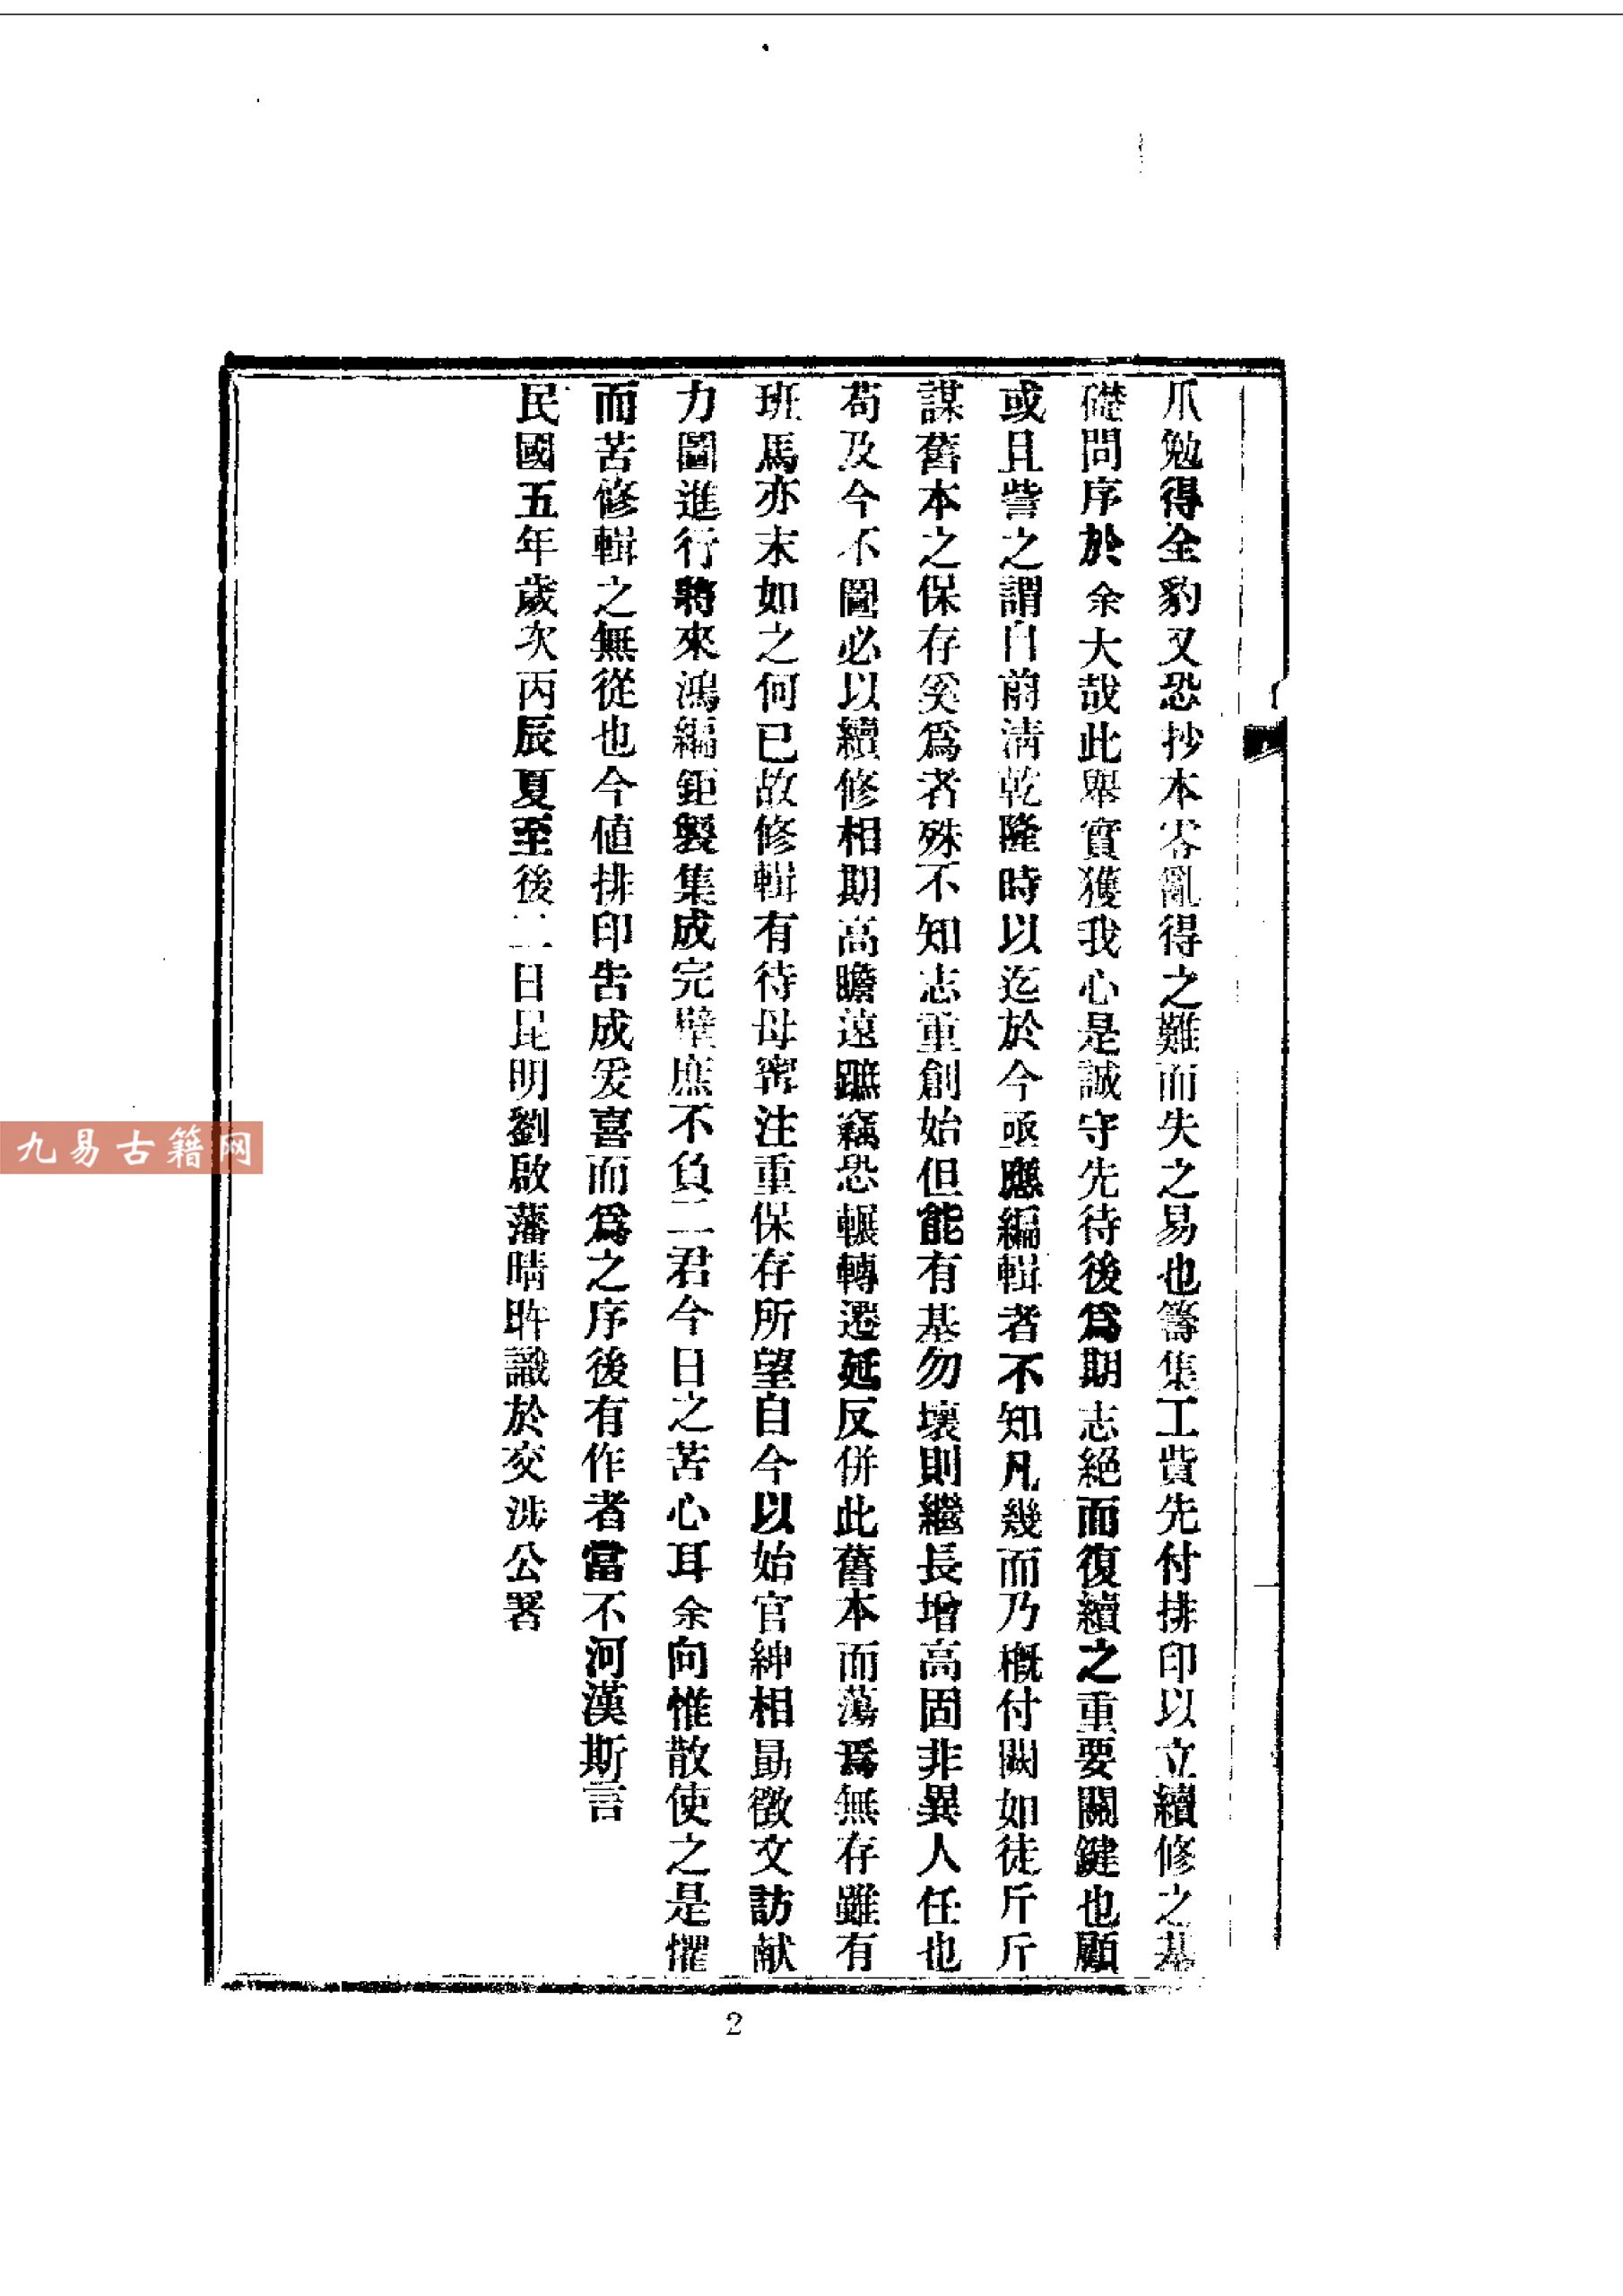 爪勉得全豹又恐抄本零亂得之難而失之易也籌集工貲先付排印以立續修之基
礎問序於余大哉此舉實獲我心是誠守先待後爲期志絕而復續之重要關鍵也顧
或且訾之謂自前清乾隆時以迄於今亟應編輯者不知凡幾而乃概付闕如徒斤斤
謀舊本之保存奚爲者殊不知志重創始但能有基勿壞則繼長增高固非異人任也
苟及今不圖必以續修相期高瞻遠蹠竊恐輾轉遷延反併此舊本而蕩爲無存雖有
班馬亦末如之何已故修輯有待毋寧注重保存所望自今以始官紳相勗徵文訪献
力圖進行將來鴻編鉅製集成完璧庶不負二君今日之苦心耳余向惟散使之是懼
而苦修輯之無從也今値排印告成爰喜而爲之序後有作者當不河漢斯言
民國五年歲次丙辰夏至後二日昆明劉啟藩晴昨識於交涉公署
九易古籍网
2